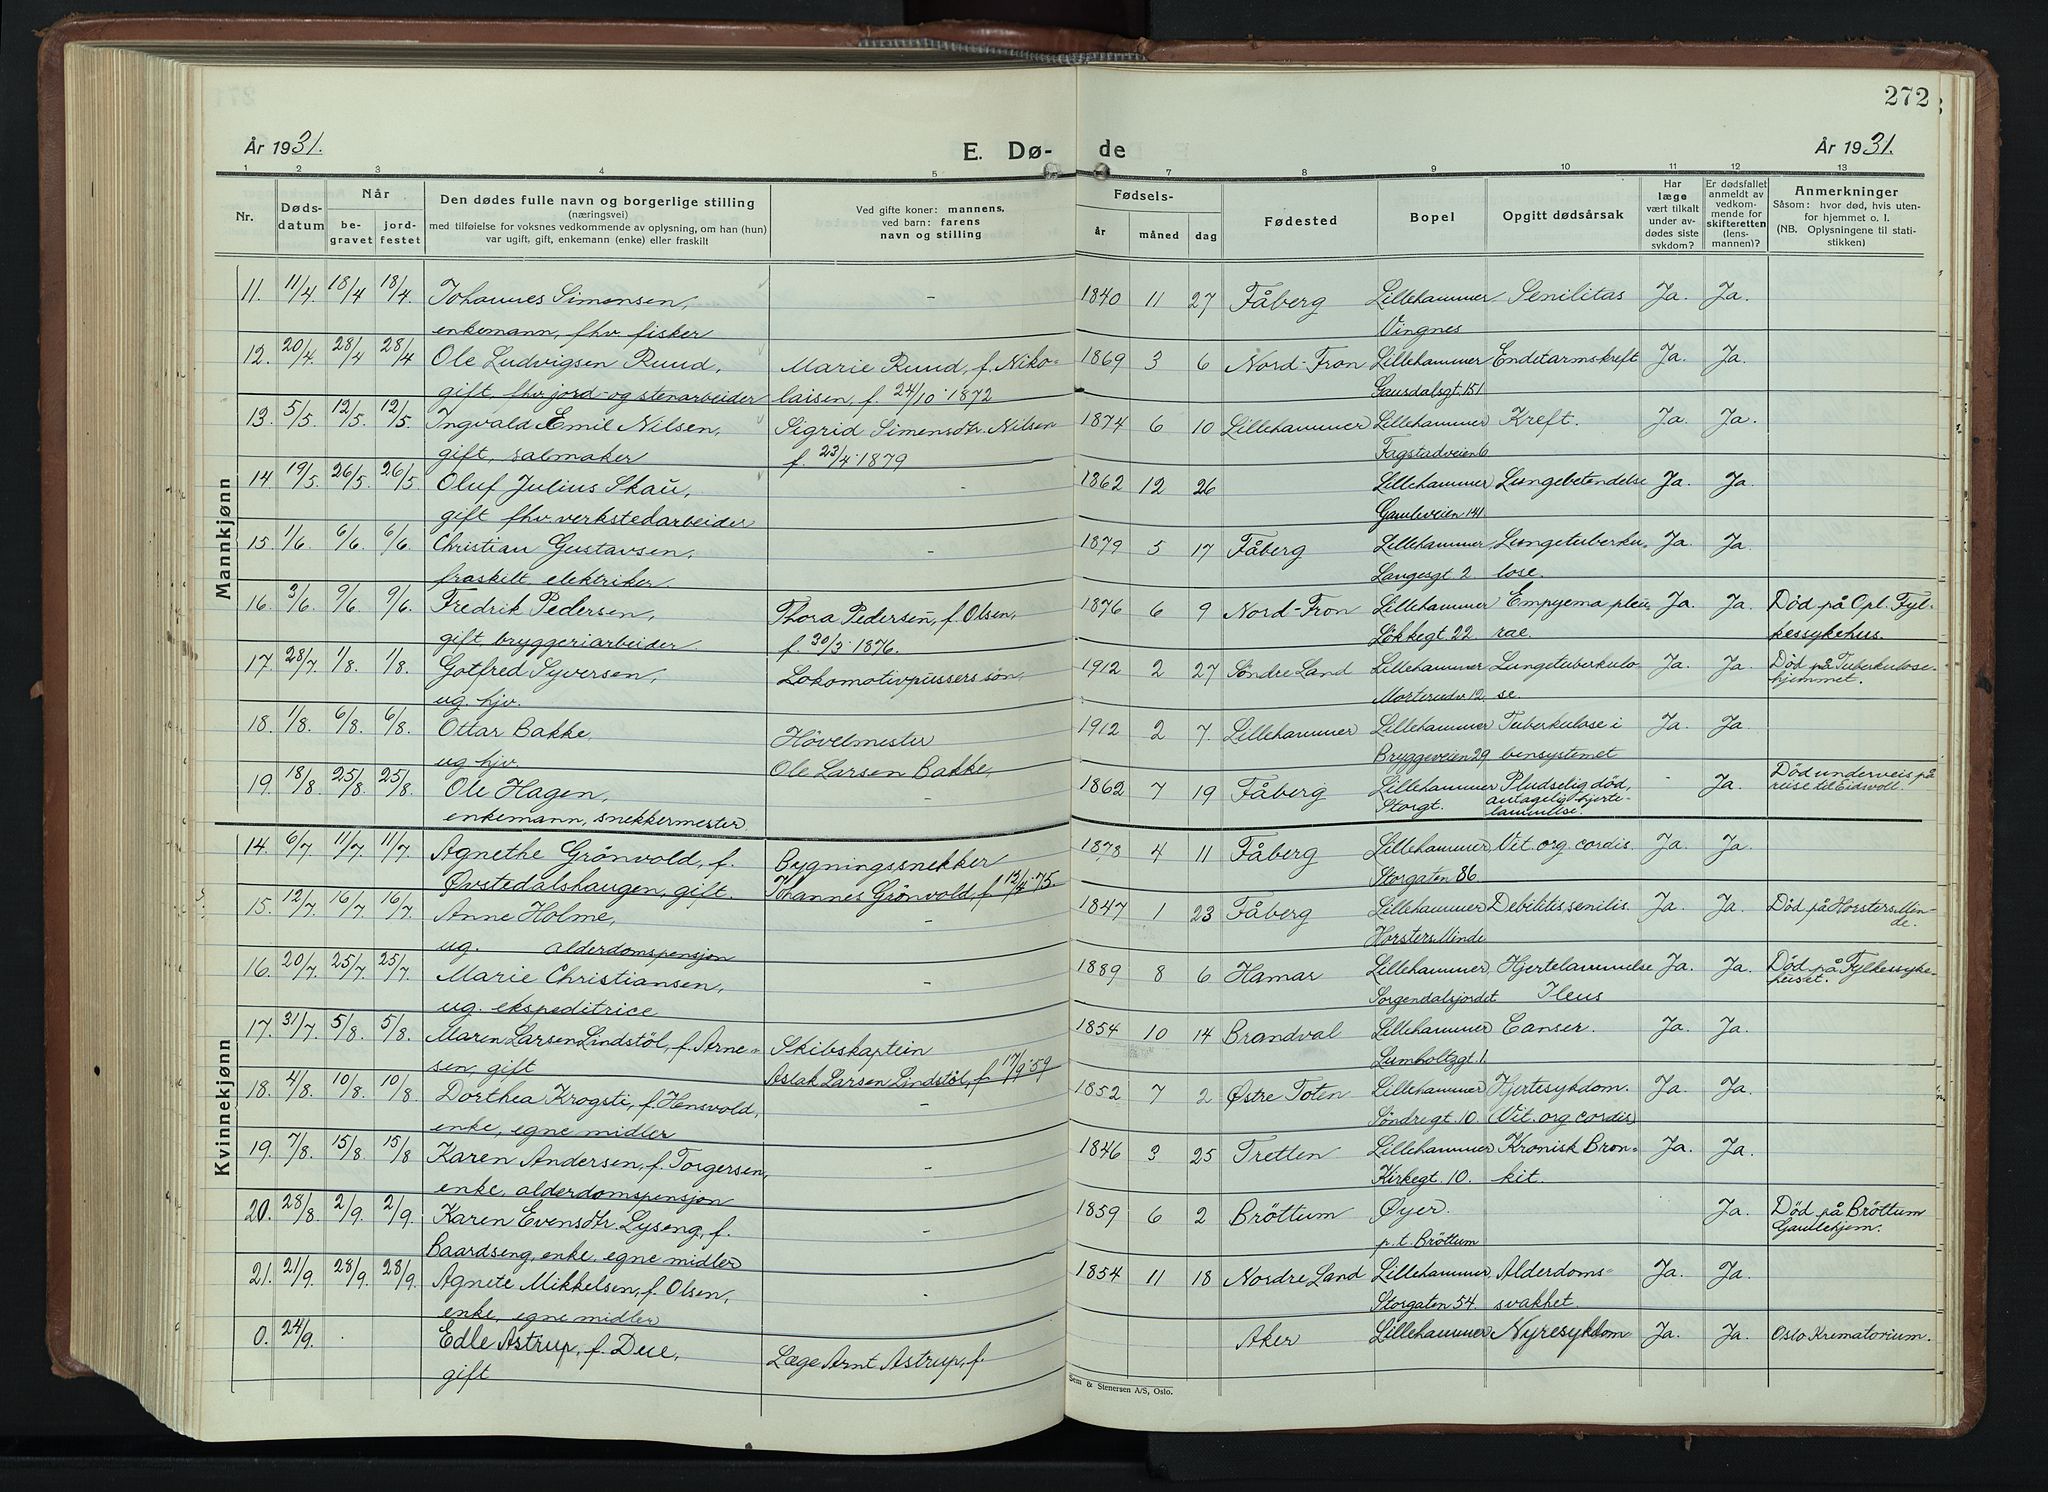 272
År 1931.
E. Dø-
de
År 1931.
1 2 3 4 5 7 8 9 10 11 12 13
Nr.
Døds-
datum
Når
be-
gravet
jord-
festet
Den dødes fulle navn og borgerlige stilling
(næringsvei)
med tilføielse for voksnes vedkommende av oplysning, om han (hun)
var ugift, gift, enkemann (enke) eller fraskilt
Ved gifte koner: mannens,
ved barn: farens
navn og stilling
Fødsels-
år måned dag
Fødested
Bopel
Opgitt dødsårsak
Har
læge
vært tilkalt
under av-
dødes siste
sykdom?
Er dødsfallet
anmeldt av
vedkom-
mende for
skifteretten
(lens-
mannen)?
Anmerkninger
Såsom: hvor død, hvis uten-
for hjemmet o. l.
(NB. Oplysningene til stati-
stikken)
Mannkjønn
11. 11/4. 18/4 18/4. Johannes Simensen, - 1840 11 27 Fåberg Lillehammer Senilitas Ja. Ja.
enkemann, fhv. fisker Vingnes
12. 20/4. 28/4 28/4 Ole Ludvigsen Ruud, Marie Ruud, f. Niko- 1869 3 6 Nord-Fron Lillehammer Endetarmskreft Ja. Ja.
gift, fhv. jord- og stenarbeider laisen, f. 24/10 1872 Gausdalsgt. 151
13. 5/5. 12/5. 12/5. Ingvald Emil Nilsen, Sigrid Simensdtr. Nilsen 1874 6 10 Lillehammer Lillehammer Kreft. Ja. Ja.
gift, salmaker f. 23/4 1879 Fagstadveien 6
14. 19/5. 26/5. 26/5 Oluf Julius Skau, - 1862 12 26 Lillehammer Lungebetendelse Ja. Ja.
gift fhv. verkstedarbeider Gamleveien 141
15. 1/6 6/6. 6/6 Christian Gustavsen, - 1879 5 17 Fåberg Lillehammer, Lungetuberku- Ja. Ja.
fraskilt, elektriker Langesgt. 2 lose.
16. 3/6. 9/6 9/6 Fredrik Pedersen, Thora Pedersen, f. Olsen, 1876 6 9 Nord-Fron Lillehammer Empyema pleu- Ja. Ja. Død på Opl. Fyl-
gift, bryggeriarbeider f. 30/3 1876. Løkkegt. 22 rae. kessykehus.
17. 28/7 1/8. 1/8. Gotfred Syversen, Lokomotivpussers søn, 1912 2 27 Søndre Land Lillehammer Lungetuberkulo- Ja. Ja. Død på Tuberkulose-
ug. hjv. se hjemmet.
18. 1/8. 6/8. 6/8. Ottar Bakke Høvelmester 1912 2 7. Lillehammer Lillehammer Tuberkulose i Ja. Ja.
ug. hjv. Ole Larsen Bakke, Bryggeveien 29 bensystemet
19. 18/8 25/8. 25/8. Ole Hagen, - 1862 7 19 Fåberg Lillehammer Pludselig død, - Ja. Død underveis på
enkemann, snekkermester. Storgt. antagelig hjerte- reise til Eidsvoll.
lammelse.
Kvinnekjønn
14. 6/7. 11/7 11/7. Agnethe Grønvold, f. Bygningssnekker 1878 4 11 Fåberg Lillehammer Vit. org. cordis. Ja. Ja.
Øvstedalshaugen, gift. Johannes Grønvold, f. 13/4 75. Storgaten 86.
15. 12/7. 16/7 16/7. Anne Holme, - 1847 1 23 Fåberg Lillehammer Debilitis, senilis. Ja. Ja. Død på Horsters Min-
ug. alderdomspensjon Horsters Minde de.
16. 20/7. 25/7. 25/7. Marie Christiansen, - 1889 8 6 Hamar Lillehammer Hjertelammelse Ja. Ja. Død på Fylkessyke-
ug. ekspeditrice Sorgendalsjordet Ileus huset.
17. 31/7. 5/8. 5/8. Maren Larsen Lindstöl, f. Arne- Skibskaptein 1854 10 14 Brandval Lillehammer Canser. Ja. Ja.
sen, gift Aslak Larsen Lindstöl, f. 17/9 59 Lumholtzgt. 1.
18. 4/8. 10/8. 10/8 Dorthea Krogsti, f. Hensvold, - 1852 7 2 Østre Toten Lillehammer Hjertesykdom. Ja. Ja.
enke, egne midler Søndregt. 10. (Vit. org. cordis)
19. 7/8. 15/8. 15/8 Karen Andersen, f. Torgersen, - 1846 3 25 Tretten Lillehammer Kronisk Bron- Ja. Ja.
enke, alderdomspensjon Kirkegt. 10. kit.
20. 28/8 2/9. 2/9. Karen Evensdtr. Lyseng, f. - 1859 6 2 Brøttum Øyer. Ja. Død på Brøttum
Baardseng, enke, egne midler p. t. Brøttum Gamlehjem.
21. 21/9. 28/9. 28/9. Agnete Mikkelsen, f. Olsen, - 1854 11 18 Nordre Land Lillehammer, Alderdoms- Ja. Ja.
enke, egne midler Storgaten 54 svakhet.
0. 24/9. Edle Astrup, f. Due, Læge Arnt Astrup, f. Aker Lillehammer Nyresykdom Ja. Ja. Oslo Krematorium.
gift
Sem & Stenersen A/S, Oslo.